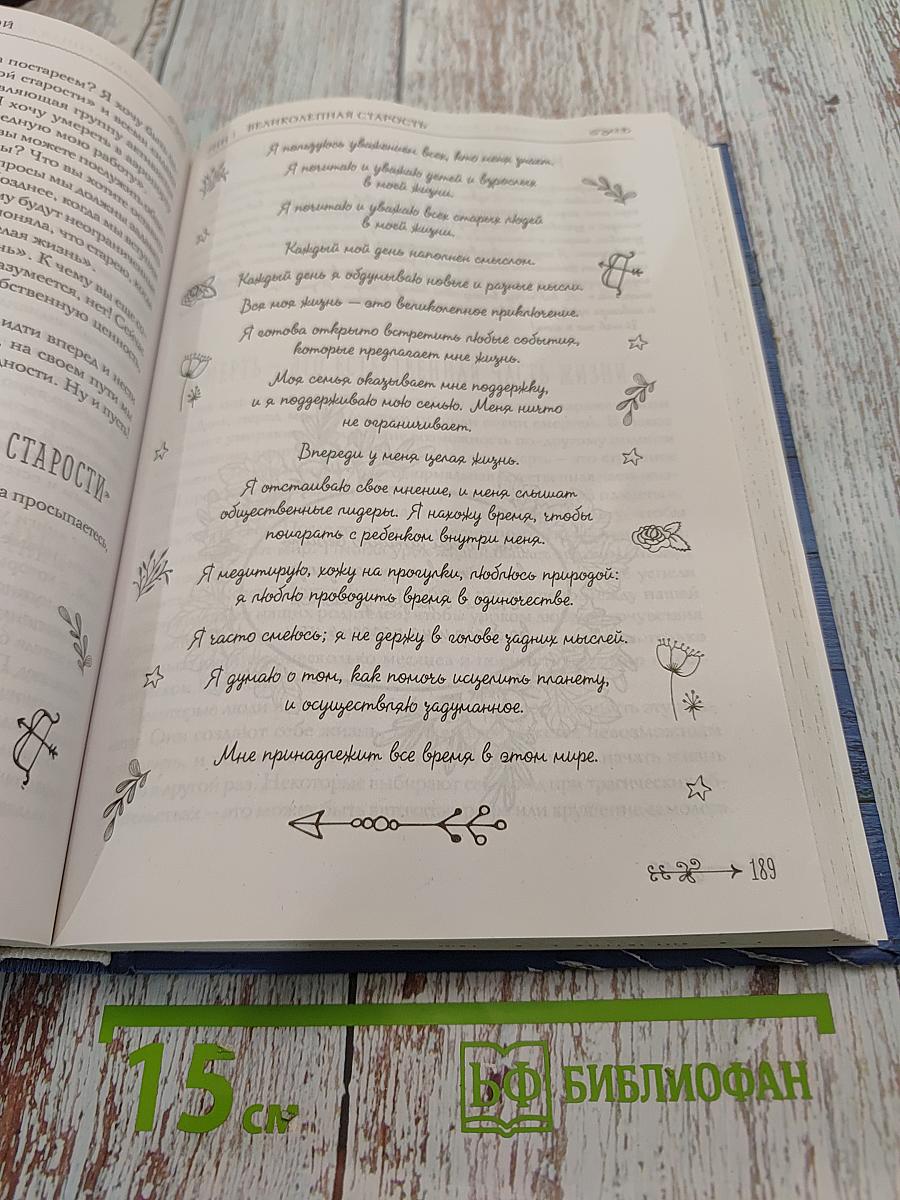 ой
а постареем? Я хочу
ой старости» и всеми
вляющая группу
Я хочу умереть в
едную мою работу».
вы можете послужить
ы? Что вы хотите
просы мы должны
озднее, когда мы
му будут неограниченные
поняла, что старею,
елая жизнь».
нь». К чему вы еще
азумеется, нет! Сейчас
бственную ценность,
идти вперед и нести
на своем пути мы
дности. Ну и пусть!
СТАРОСТИ»
а просыпаетесь,
ВЕЛИКОЛЕПНАЯ СТАРОСТЬ
Я пользуюсь уважением всех, кто меня знает.
Я почитаю и уважаю детей и взрослых
в моей жизни.
Я почитаю и уважаю всех старых людей
в моей жизни.
Каждый мой день наполнен смыслом.
Каждый день я обдумываю новые и разные мысли.
Вся моя жизнь — это великолепное приключение.
Я готова открыто встретить любые события,
которые предлагает мне жизнь.
Моя семья оказывает мне поддержку,
и я поддерживаю мою семью. Меня ничто
не ограничивает.
Впереди у меня целая жизнь.
Я отстаиваю свое мнение, и меня слышат
общественные лидеры. Я нахожу время, чтобы
поиграть с ребенком внутри меня.
Я медитирую, хожу на прогулки, любуюсь природой:
я люблю проводить время в одиночестве.
Я часто смеюсь; я не держу в голове задних мыслей.
Я думаю о том, как помочь исцелить планету,
и осуществляю задуманное.
Мне принадлежит все время в этом мире.
189
15 см
БФ БИБЛИОФАН